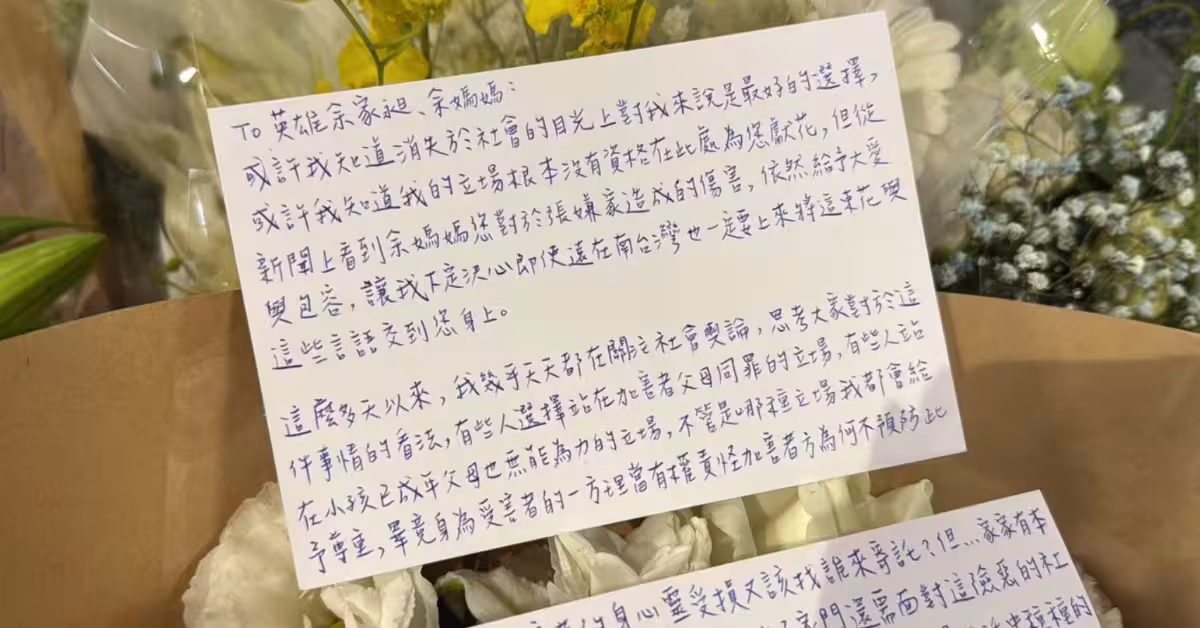 TO 英雄余家昶、余媽媽：
或許我知道消失於社會的目光上對我來說是最好的選擇，
或許我知道我的立場根本沒有資格在此處為您獻花，但從
新聞上看到余媽媽您對於張嫌家造成的傷害，依然給予大愛
與包容，讓我下定決心即使遠在南台灣也一定要上來將這束花與
這些言語交到您身上。
這麼多天以來，我幾乎天天都在關注社會輿論，思考大家對於這
件事情的看法，有些人選擇站在加害者父母同罪的立場，有些人站
在小孩已成年父母也無能為力的立場，不管是哪種立場我都會給
予尊重，畢竟身為受害者的一方理當有權責怪加害者方為何不預防此
身心靈受損又該找誰來寄託？但...家家有本
門還需面對這險惡的社
種的